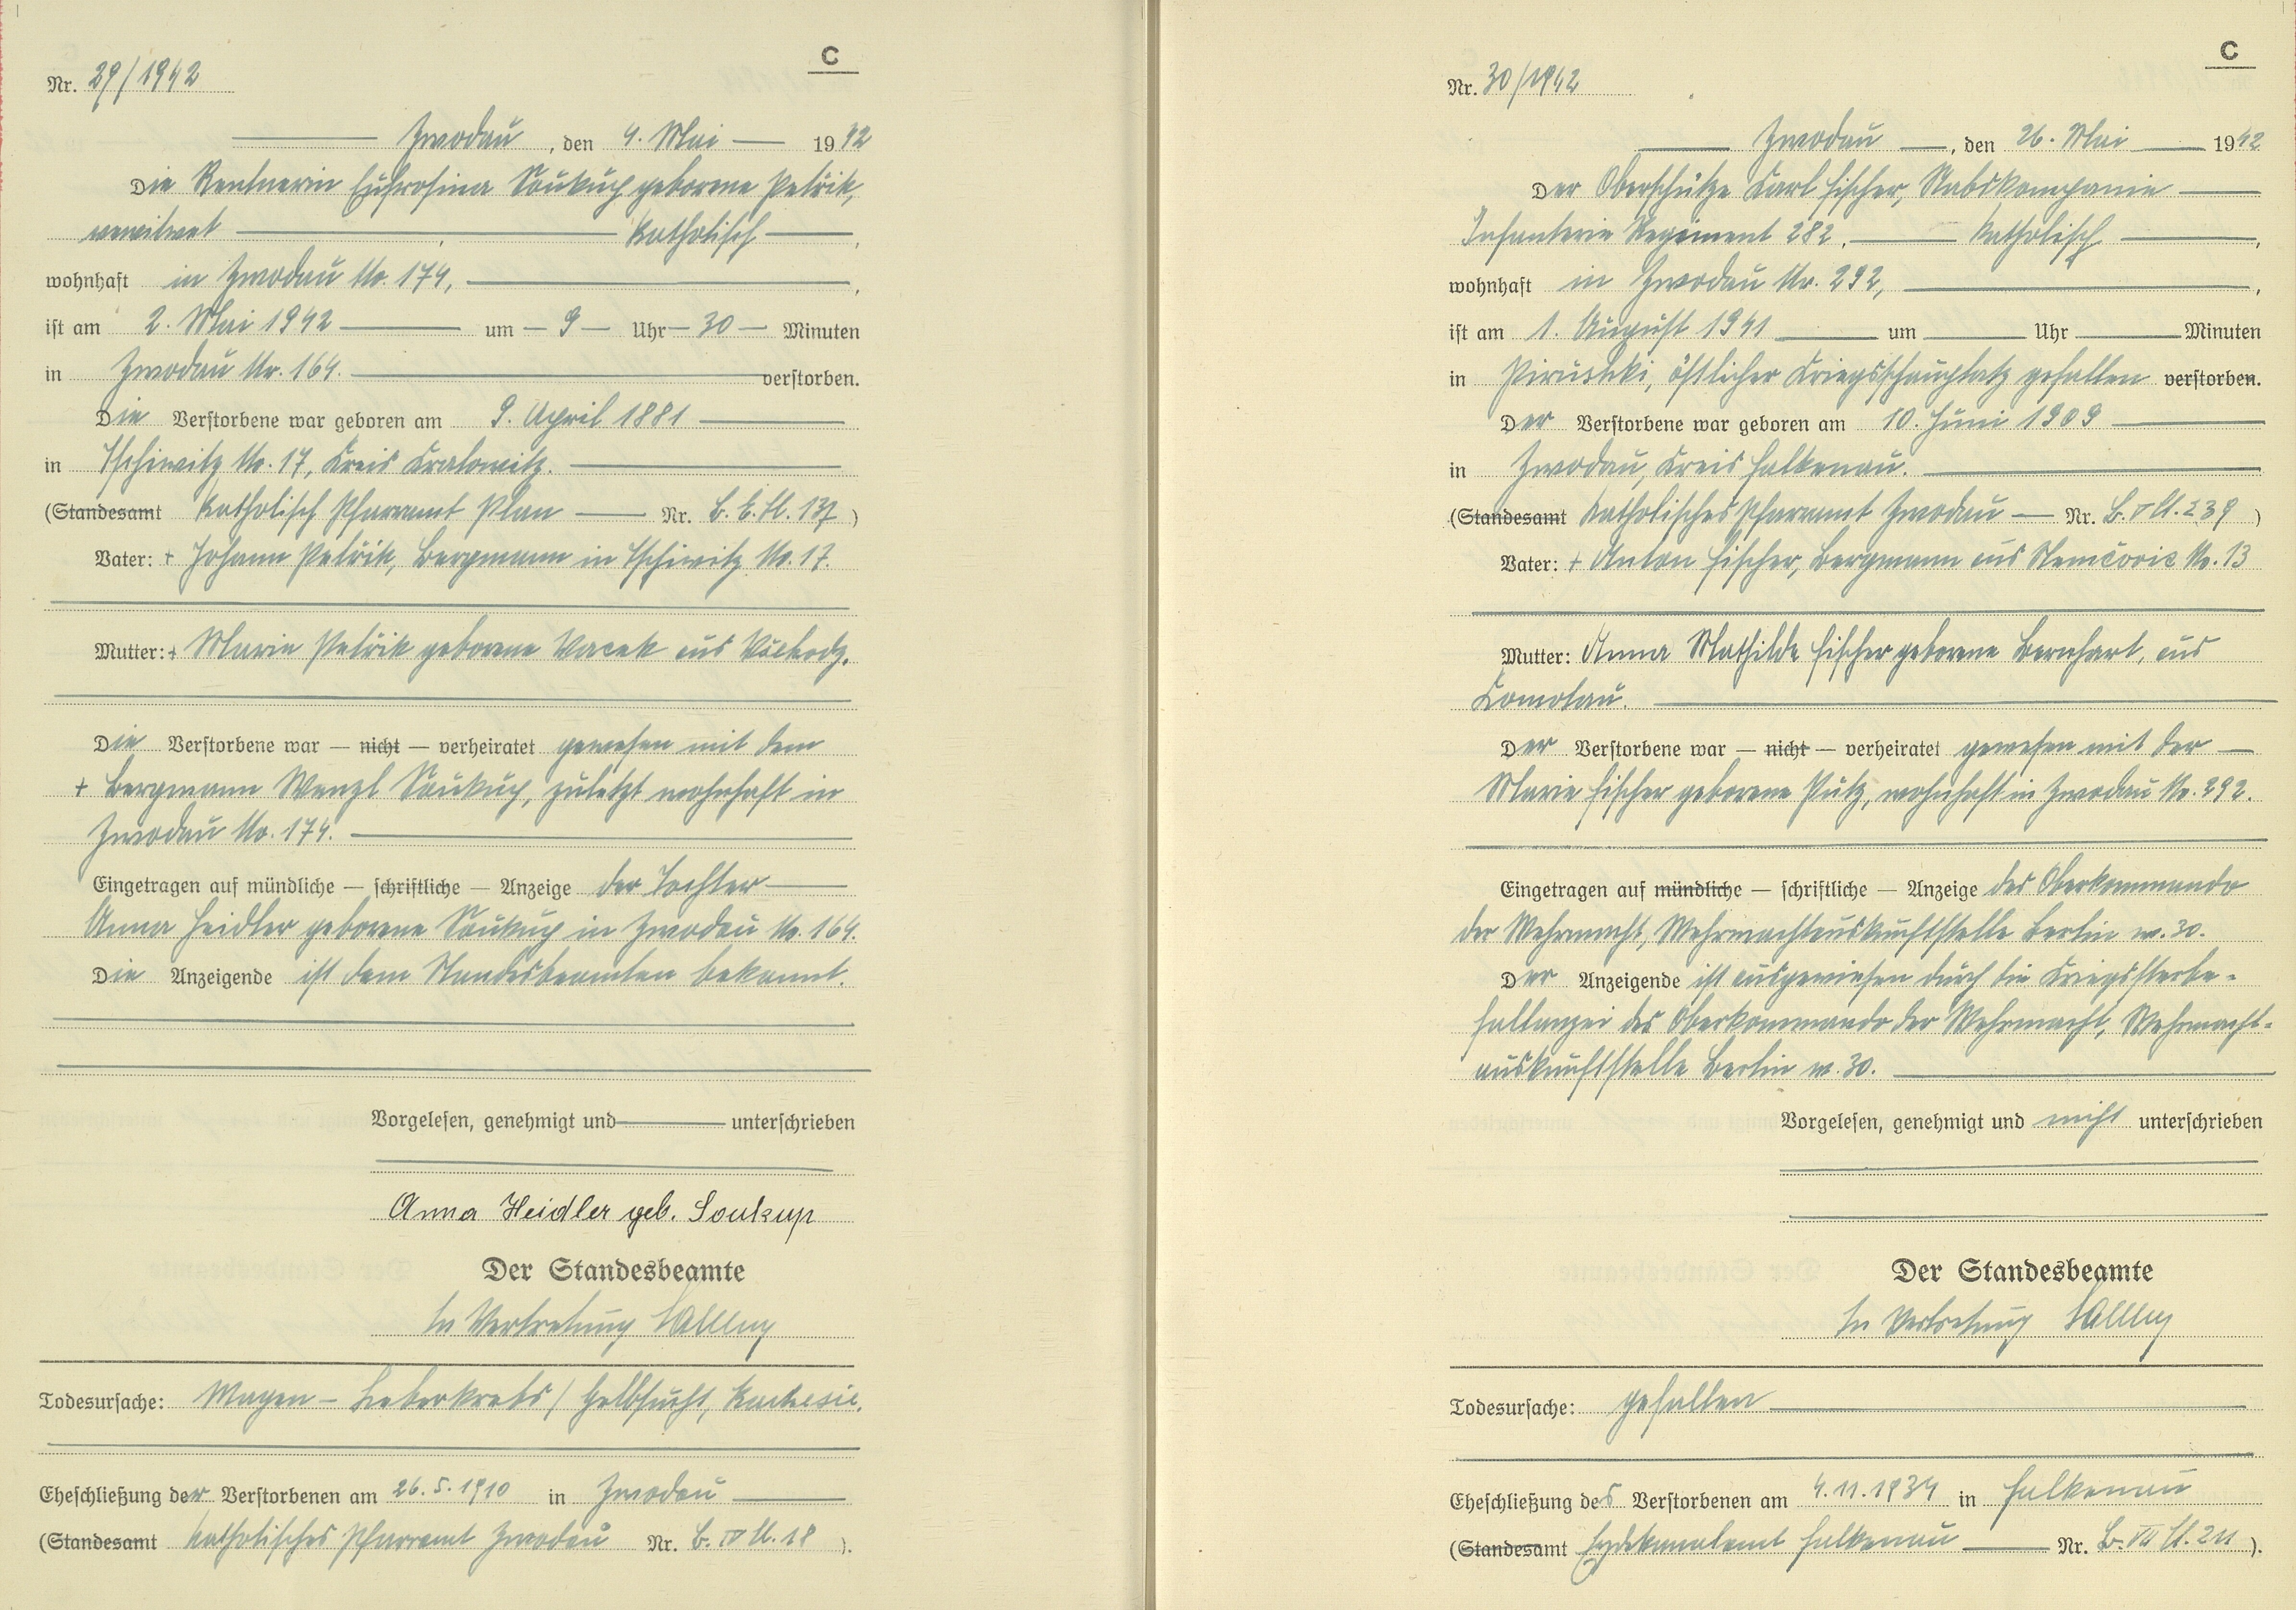 C
Nr. 29/1942
Zwodau, den 4. Mai 1942
Die Rentnerin Eufrosina Soukup geborene Petřik,
verwitwet katholisch,
wohnhaft in Zwodau Nr. 174,
ist am 2. Mai 1942 um 9 Uhr 30 Minuten
in Zwodau Nr. 164. verstorben.
Die Verstorbene war geboren am 9. April 1881
in Tschiwitz Nr. 17, Kreis Kralowitz.
(Standesamt Katholisch Pfarramt Plan Nr. 137)
Vater: + Johann Petřik, Bergmann in Tschiwitz Nr. 17.
Mutter: + Marie Petřik geborene Vacek aus
Die Verstorbene war — nicht — verheiratet gewesen mit dem
+ Bergmann Wenzl Soukup, zuletzt wohnhaft in
Zwodau Nr. 174.
Eingetragen auf mündliche — schriftliche — Anzeige der Tochter
Anna Heidler geborene Soukup in Zwodau Nr. 164.
Die Anzeigende ist dem Standesbeamten bekannt.
Vorgelesen, genehmigt und unterschrieben
Anna Heidler geb. Soukup
Der Standesbeamte
In Vertretung
Todesursache: Magen - Leberkrebs / Gelbsucht, Kachesie.
Eheschließung der Verstorbenen am 26.5.1910 in Zwodau
(Standesamt Katholisches Pfarramt Zwodau Nr. B. IV Bl. 18).
C
Nr. 30/1942
Zwodau, den 26. Mai 1942
Der Oberschütze Karl Fischer, Stabskompanie
Infanterie Regiment 282. katholisch,
wohnhaft in Zwodau Nr. 292,
ist am 1. August 1941 um Uhr Minuten
in östlicher Kriegsschauplatz gefallen verstorben.
Der Verstorbene war geboren am 10. Juni 1909
in Zwodau, Kreis Falkenau.
(Standesamt Katholisches Pfarramt Zwodau Nr. B. V Bl. 239)
Vater: + Anton Fischer, Bergmann aus Nemčovic Nr. 13
Mutter: Anna Mathilde Fischer geborene Bernhart, aus
Komotau.
Der Verstorbene war — nicht — verheiratet gewesen mit der
Marie Fischer geborene Putz, wohnhaft in Zwodau Nr. 292.
Eingetragen auf mündliche — schriftliche — Anzeige des Oberkommando
der Wehrmacht, Wehrmachtauskunftstelle Berlin w. 30.
Der Anzeigende ist ausgewiesen durch die Kriegssterbe-
fallanzei des Oberkommando der Wehrmacht, Wehrmacht-
auskunftstelle Berlin w. 30.
Vorgelesen, genehmigt und nicht unterschrieben
Der Standesbeamte
In Vertretung
Todesursache: gefallen
Eheschließung des Verstorbenen am 4.11.1934 in Falkenau
(Standesamt Erzdekanalamt Falkenau Nr. B. VII Bl. 211).